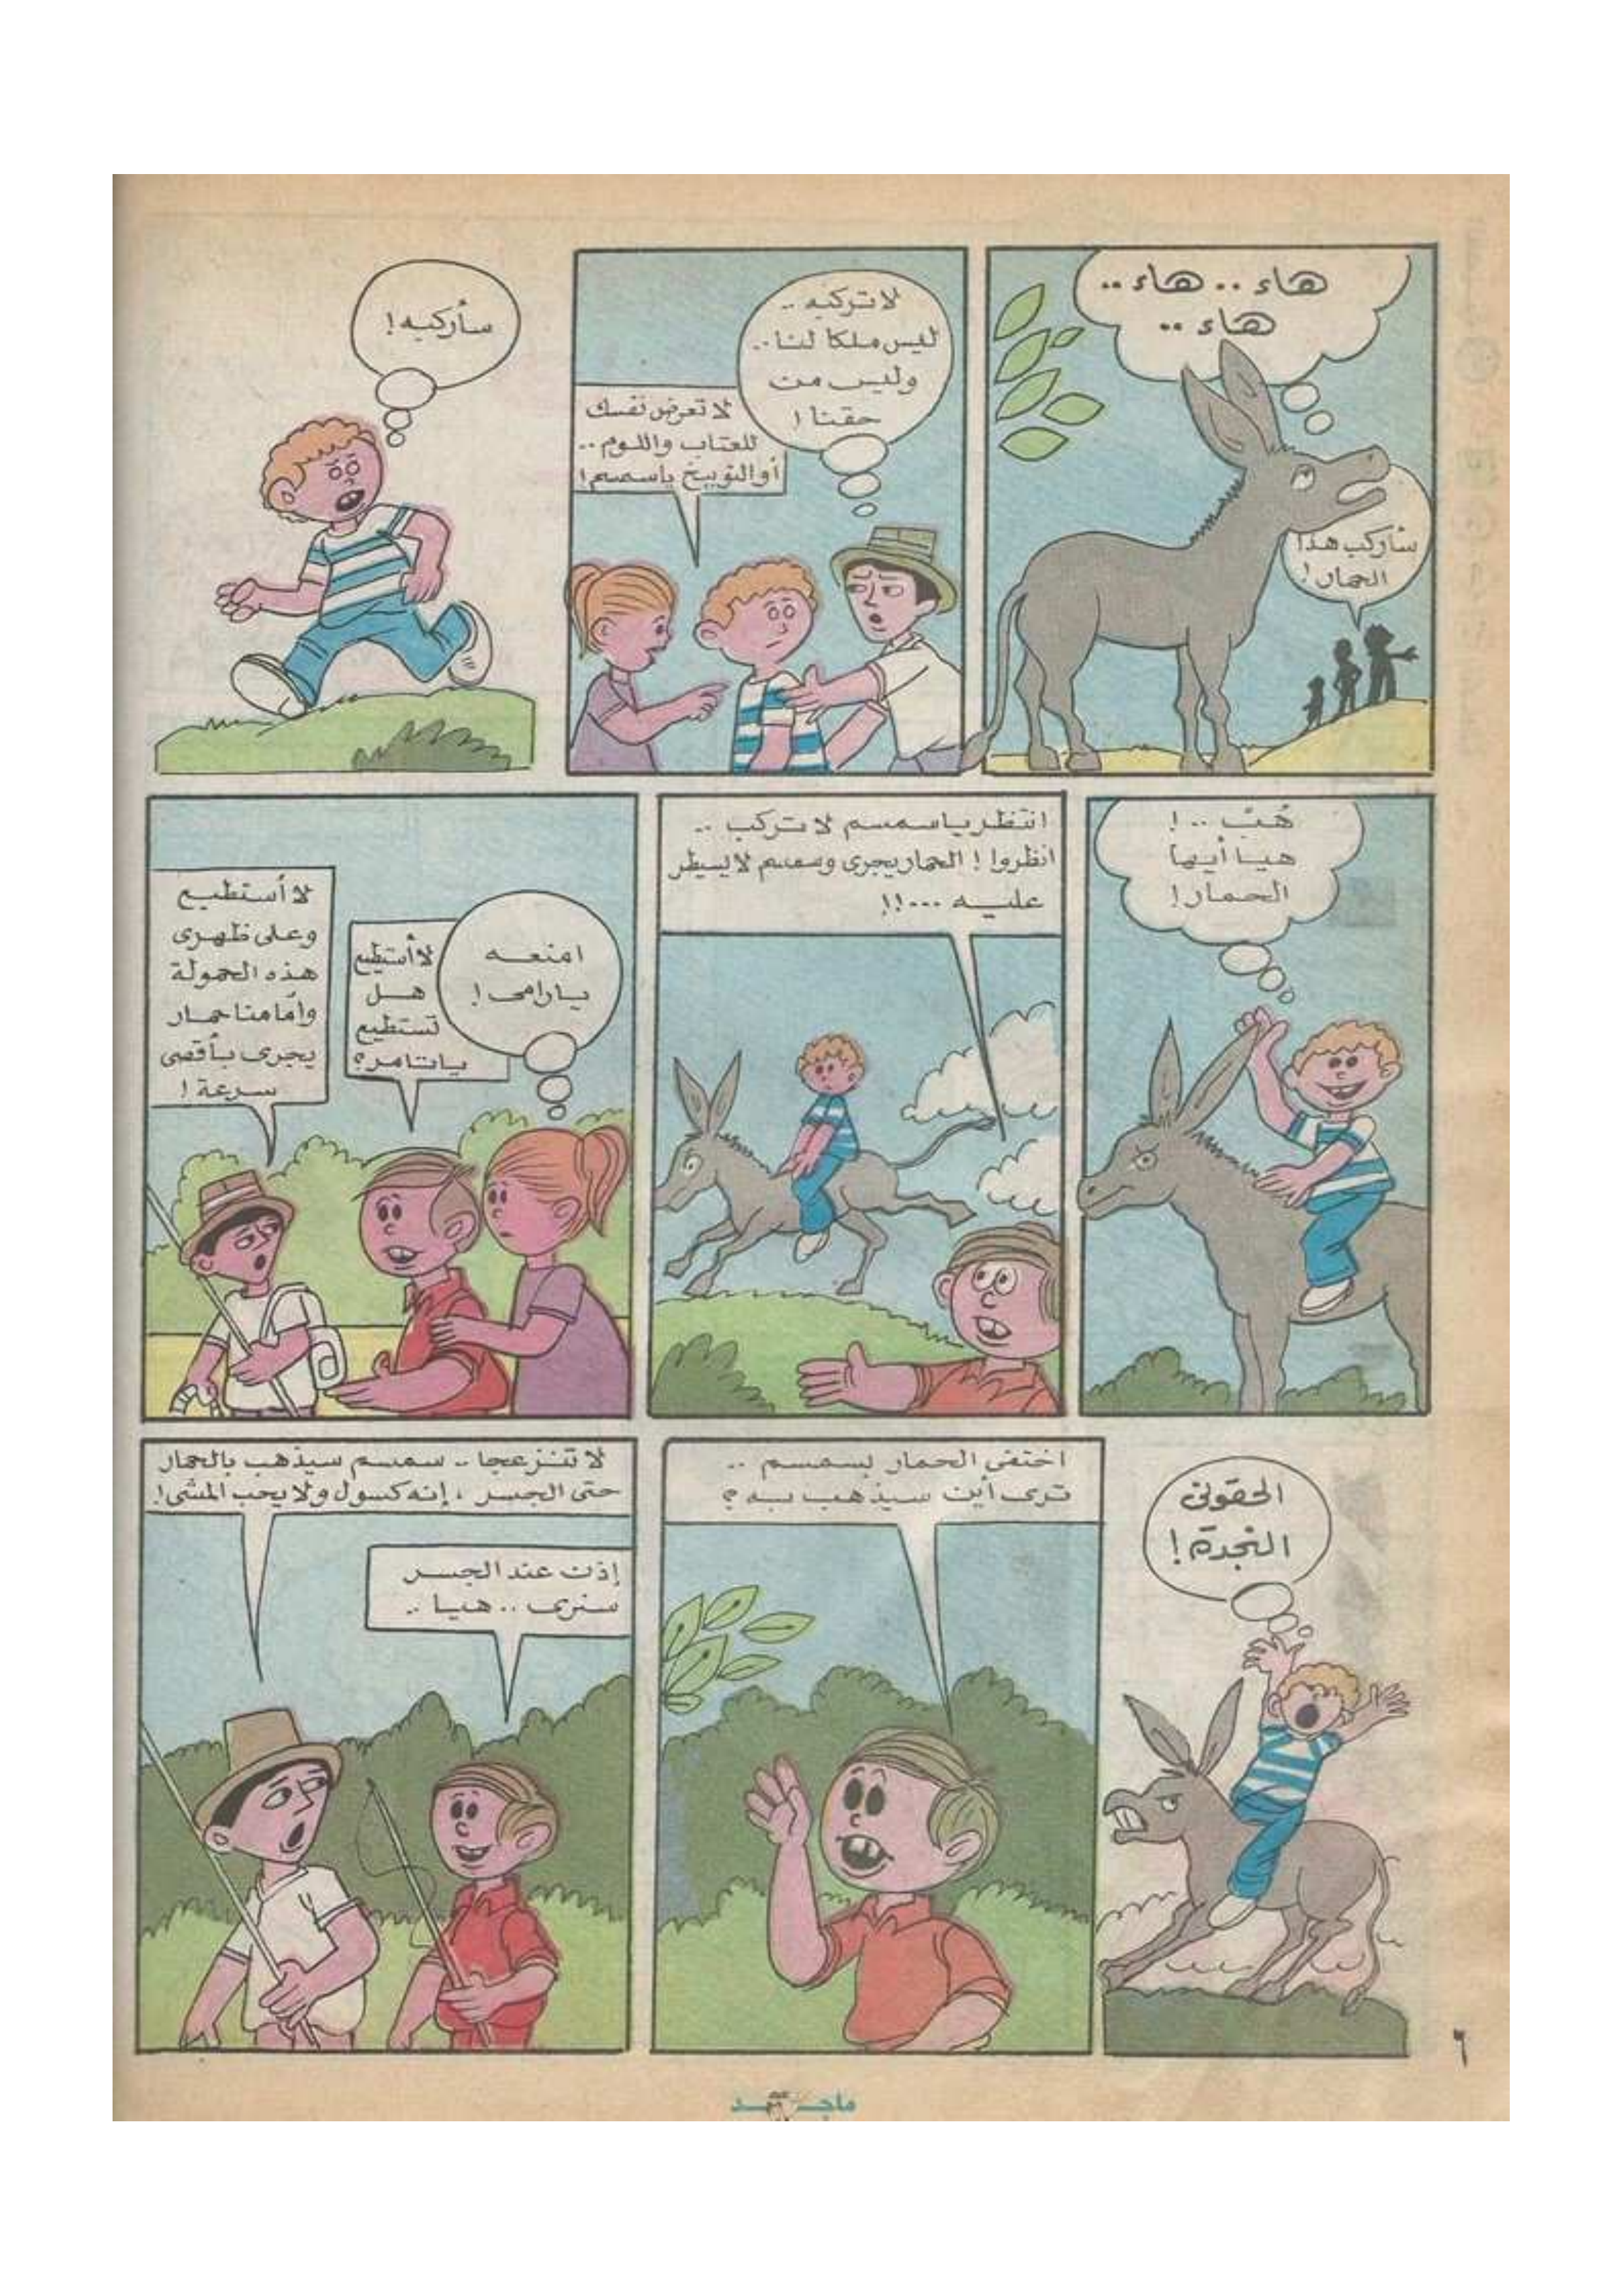 هاء .. هاء ..
هاء ..
سأركب هذا
الحمار !
لا تركبه ..
ليس ملكا لنا ..
وليس من
حقنا !
لا تعرض نفسك
للعتاب واللوم ..
أو التوبيخ ياسمسم !
سأركبه !
هُبّ .. !
هيا أيها
الحمار !
انتظر ياسمسم لا تركب ..
انظروا ! الحمار يجرى وسمسم لا يسيطر
عليه ...!!
امنعه
يارامى !
لا أستطيع
هل
تستطيع
ياتامر ؟
لا أستطيع
وعلى ظهرى
هذه الحمولة
وأمامنا حمار
يجرى بأقصى
سرعة !
الحقونى
النجدة !
اختفى الحمار بسمسم ..
ترى أين سيذهب به ؟
لا تنزعجا .. سمسم سيذهب بالحمار
حتى الجسر ، إنه كسول ولا يحب المشى !
إذن عند الجسر
سنرى .. هيا ..
٦
ماجد